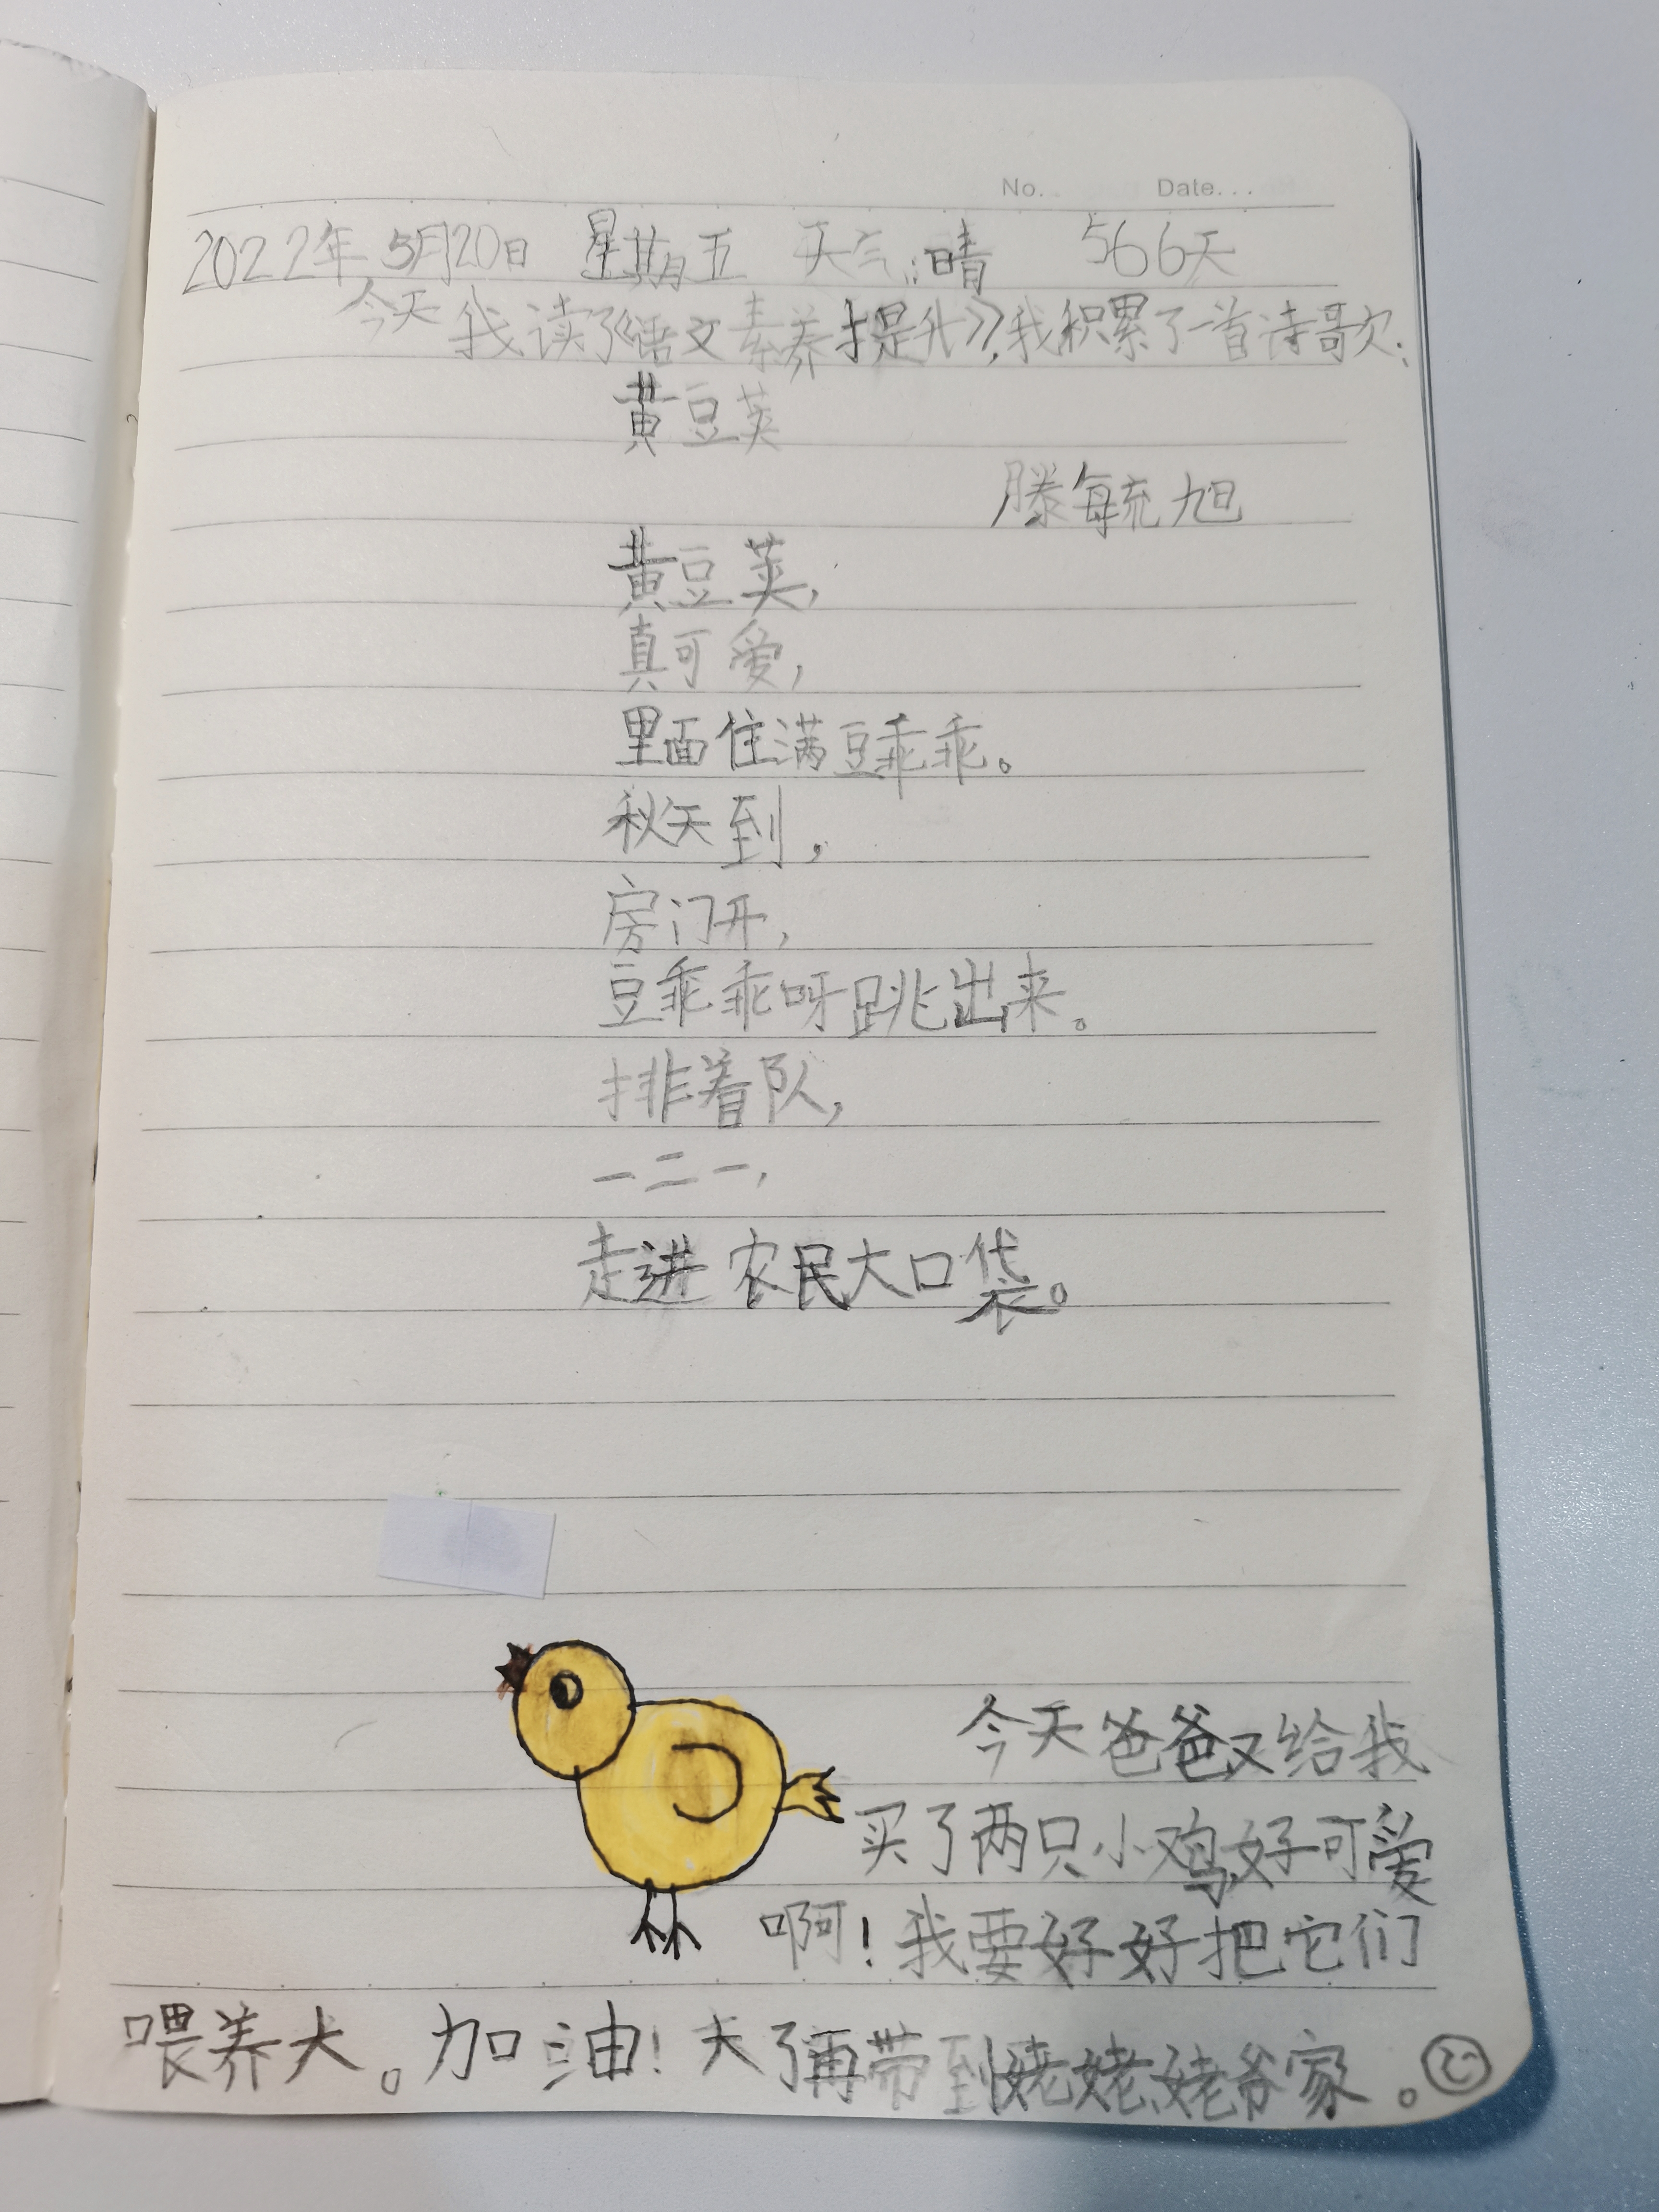 No. Date...
2022年5月20日 星期五 天气:晴 566天
今天我读了《语文素养提升》,我积累了一首诗歌:
黄豆荚
滕毓旭
黄豆荚,
真可爱,
里面住满豆乖乖。
秋天到,
房门开,
豆乖乖呀跳出来。
排着队,
一二一,
走进农民大口袋。
今天爸爸又给我
买了两只小鸡,好可爱
啊!我要好好把它们
喂养大。加油!大了再带到姥姥姥爷家。